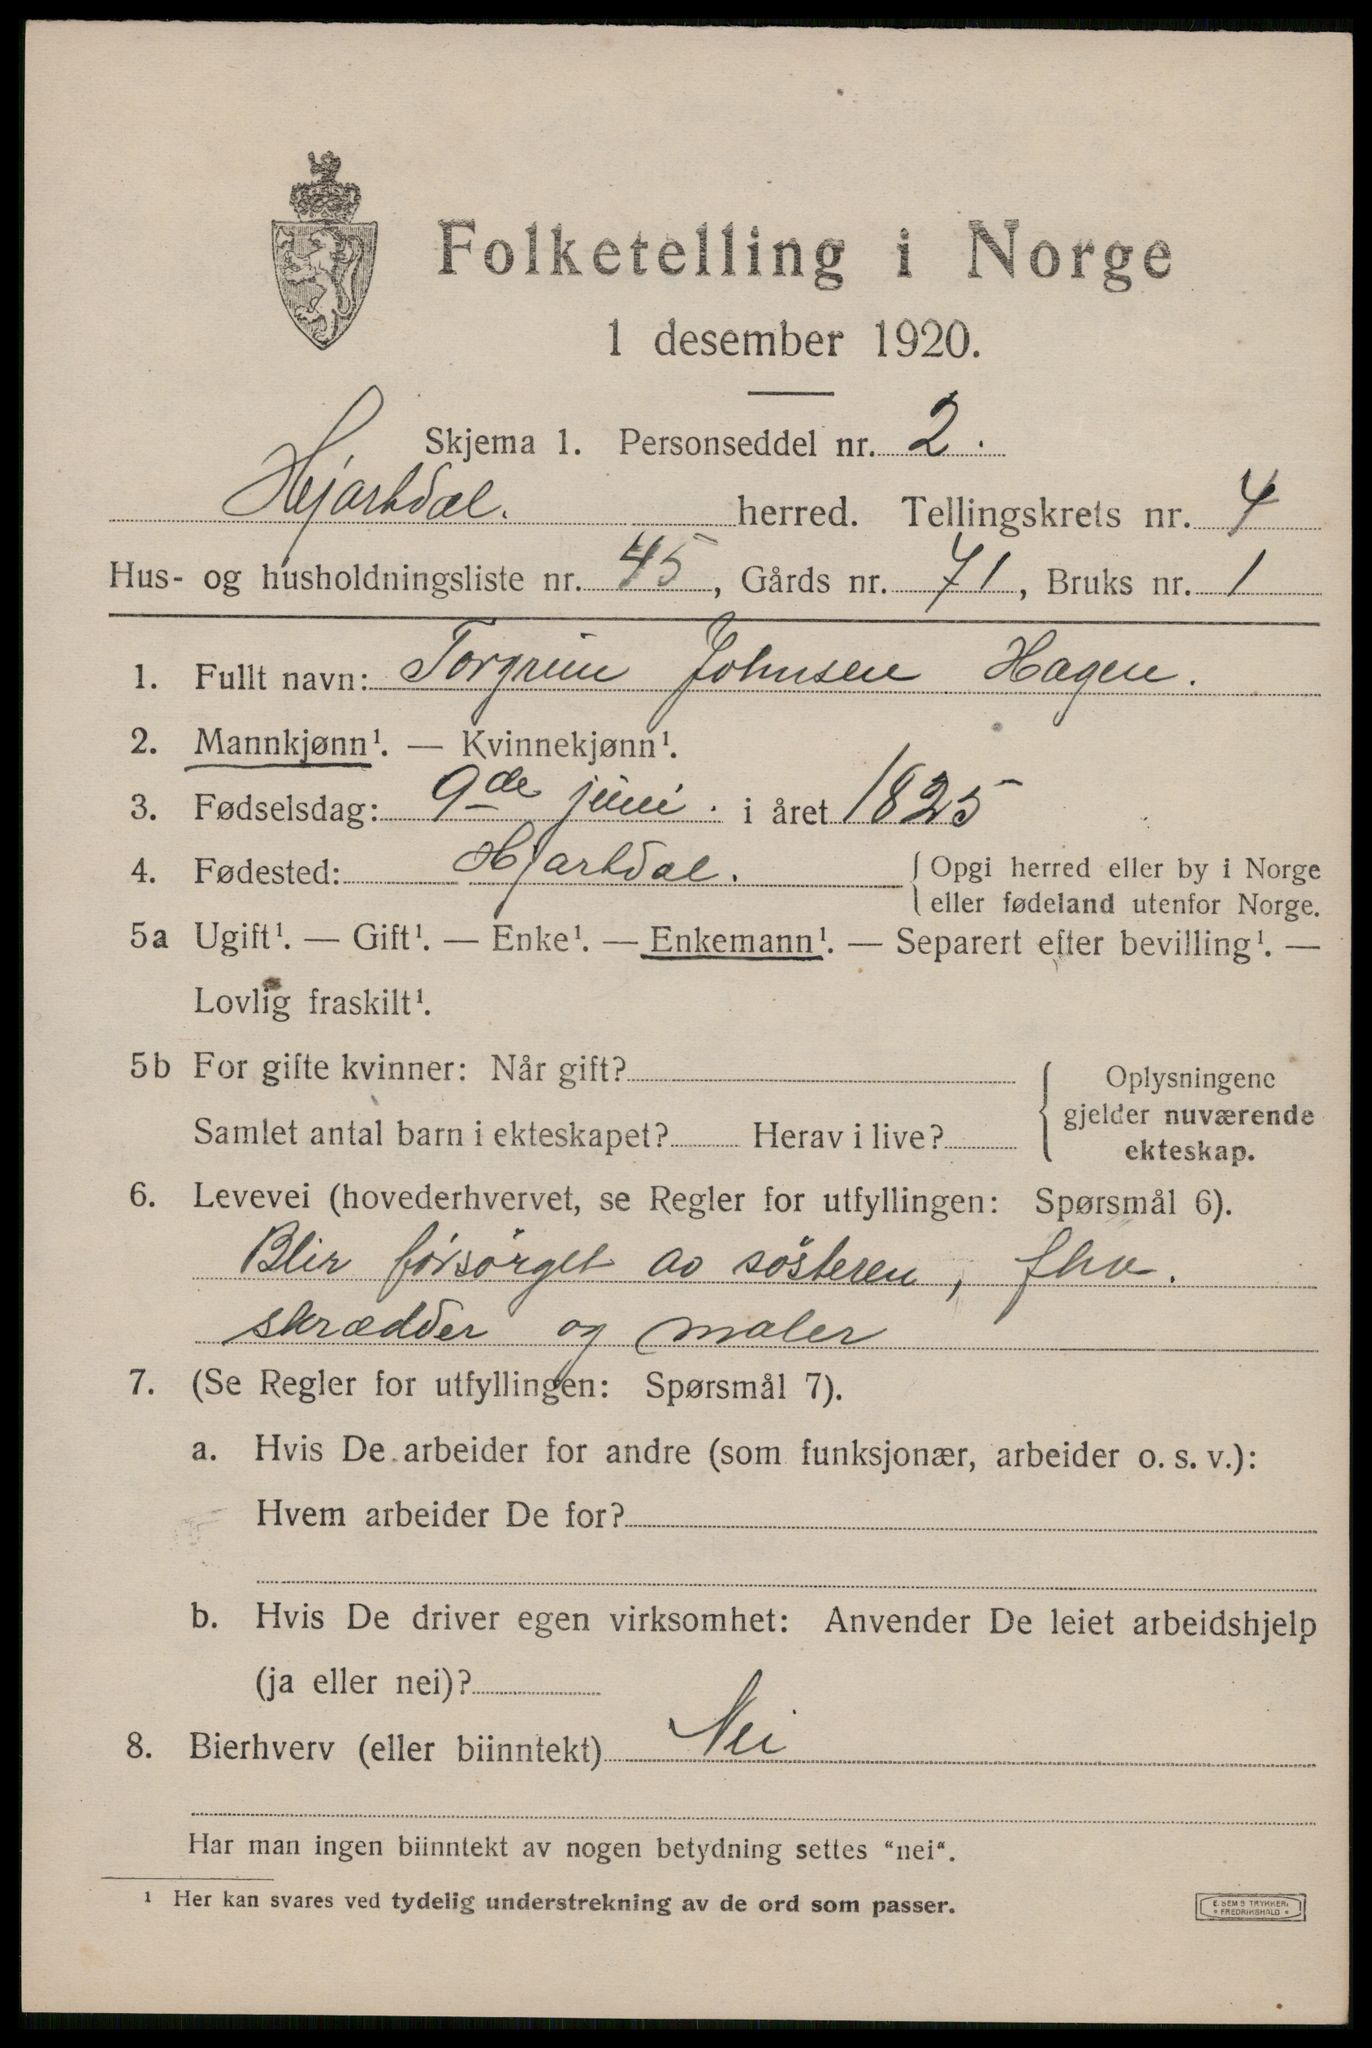 Folketelling i Norge
1 desember 1920.
Skjema 1. Personseddel nr. 2.
Hjartdal. herred. Tellingskrets nr. 4
Hus- og husholdningsliste nr. 45, Gårds nr. 71, Bruks nr. 1
1. Fullt navn: Torgrim Johnsen Hagen.
2. Mannkjønn¹. — Kvinnekjønn¹.
3. Fødselsdag: 9de juni. i året 1825
4. Fødested: Hjartdal. { Opgi herred eller by i Norge
eller fødeland utenfor Norge.
5a Ugift¹. — Gift¹. — Enke¹. — Enkemann¹. — Separert efter bevilling¹. —
Lovlig fraskilt¹.
5b For gifte kvinner: Når gift?
Samlet antal barn i ekteskapet? Herav i live?
Oplysningene
gjelder nuværende
ekteskap.
6. Levevei (hovederhvervet, se Regler for utfyllingen: Spørsmål 6).
Blir forsörget av sösteren, fhv.
skrædder og maler
7. (Se Regler for utfyllingen: Spørsmål 7).
a. Hvis De arbeider for andre (som funksjonær, arbeider o. s. v.):
Hvem arbeider De for?
b. Hvis De driver egen virksomhet: Anvender De leiet arbeidshjelp
(ja eller nei)?
8. Bierhverv (eller biinntekt) Nei
Har man ingen biinntekt av nogen betydning settes "nei".
¹ Her kan svares ved tydelig understrekning av de ord som passer.
E. SEMS TRYKKERI
• FREDRIKSHALD •